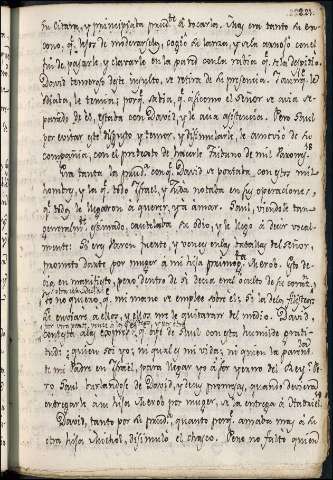 223.
su Citara, y principiaba prud.te al tocarlo. Mas era tanto su en-
cono, q.e lejos de moderarselo, cogió su lanza, y se la arrojó con el
fin de pasarle, y clavarle en la pared con la rabia q.e le despidió.
David temeroso de este insulto, se retira de su presencia. Saul le
odiaba, le temia; porq.e sabia q.e asi como el Señor se avia se-
parado de el, estaba con David, y le avia asistencia. Pero Saul
por evitar este disgusto y temor, y disimularle, le removió de su
compañia, con el pretexto de hacerle Tribuno de mil hombres. 18
Era tanta la prud. con q.e David se portaba con estos mil
hombres, y la q.e todo Israel, y Juda notaba en sus operaciones,
q.e todos le llegaron a querer, y a amar. Saul, viendole tan
generalm.te estimado, cautelaba su odio, y le llego a decir vocal-
mente: Si eres Varon fuerte, y vences en las batallas del Señor,
prometo darte por muger à mi hija primog.ta Merob. Esto de-
cia en manifiesto, pero dentro de si decia en el oculto de su corazon,
yo no quiero q.e mi mano se emplee sobre el; si la de los filisteos:
le enviare a ellos, y ellos me le quitaràn del medio. David,
contesta a la expres.n q.e oye de Saul con esta humilde grati-
tud: quien soi yo; ni qual es mi vida; ni quien la parentela
de mi Padre en Israel, para llegar yo a ser yerno del Rey? Pe-
ro Saul burlandose de David, y de sus promesas, quando deviera
entregarle à su hija Merob por muger, se la entrega à Hadriel. 19
David, tanto por su prud.a quanto porq.e amaba mas a su
otra hija Michol, disimuló el chasco. Pero no faltó quien